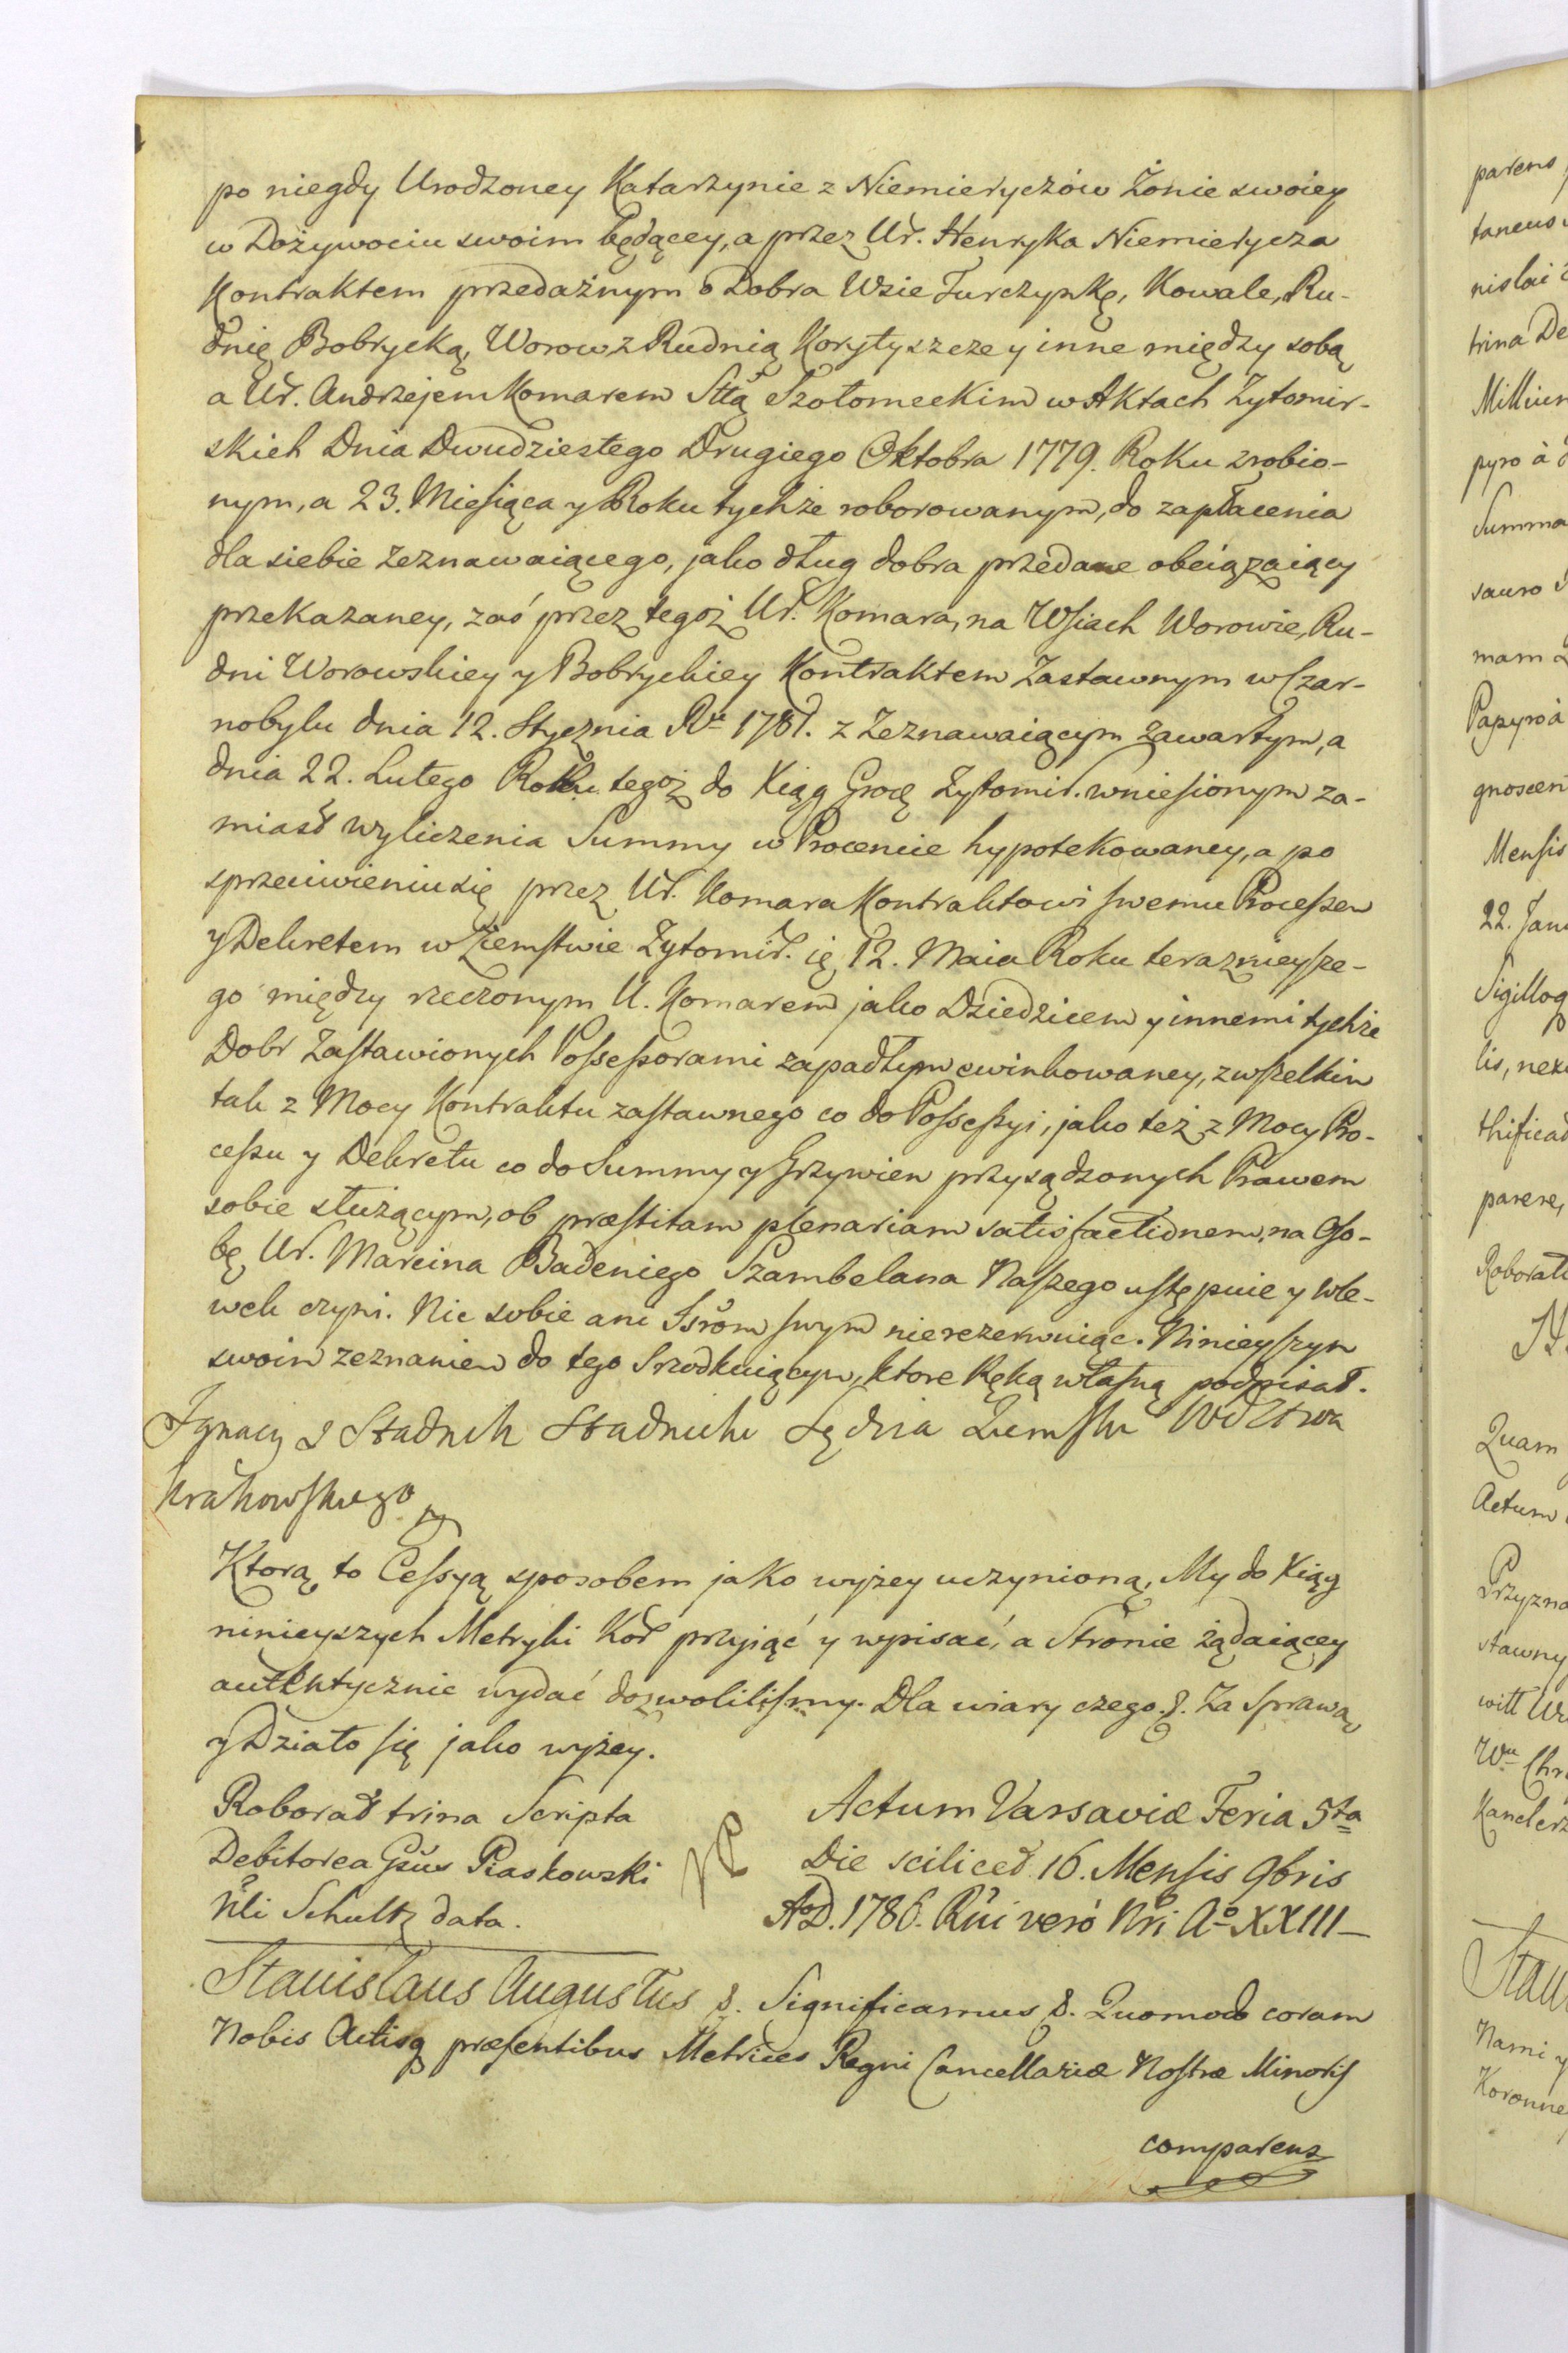 po niegdy Urodzoney Katarzynie z Niemieryczów Żonie swoiey
w Dożywociu swoim będącey, a przez Ur. Henryka Niemierycza
Kontraktem przedażnym o Dobra Wsie Turczynkę, Kowale, Ru-
dnię Bobrycką, Worow z Rudnią Korytyszcze y inne między sobą
a Ur. Andrzejem Komarem Sttą Szołomeckim w Aktach Zytomir-
skich Dnia Dwudziestego Drugiego Oktobra 1779. Roku zrobio-
nym, a 23. Miesiąca y Roku tychże roborowanym, do zapłacenia
dla siebie zeznawaiącego, jako dług dobra przedane obciązaiący
przekazaney, zaś przez tegoż Ur. Komara, na Wsiach Worowie, Ru-
dni Worowskiey y Bobryckiey Kontraktem Zastawnym w Czar-
nobylu dnia 12. Stycznia Ru 1781. z Zeznawaiącym zawartym, a
dnia 22. Lutego Roku tegoż do Xiąg Grod Zytomir. wniesionym za-
miast wyliczenia Summy w Procencie hypotekowaney, a po
sprzeciwieniu się przez Ur. Komara Kontraktowi swemu Processem
y Dekretem w Ziemstwie Zytomir. 12. Maia Roku terazniejsze-
go między rzeczonym U. Komarem jako Dziedzicem y innemi tychże
Dobr Zastawionych Possessorami zapadłym ewinkowaney, z wszelkim
tak z Mocy Kontraktu zastawnego co do Possessyi, jako też z Mocy Pro-
cessu y Dekretu co do Summy y Grzywien przysądzonych Prawem
sobie służącym, ob præstitam plenariam satisfactionem, na Oso-
bę Ur. Marcina Badeniego Szambelana Naszego ustępuie y wle-
wek czyni. Nic sobie ani Ssrom swym nierezerwuiąc. Ninieyszym
swoim zeznaniem do tego srzodkuiącym, ktore Ręką własną podpisał.
Ignacy z Stadnik Stadnicki Sędzia Ziemski Wdztwa
Krakowskiego
Ktorą to Cessyą sposobem jako wyżey uczynioną, My do Xiąg
ninieyszych Metryki Kor przyjąć y wypisać, a Stronie żądaiącey
autentycznie wydać dozwolilismy. Dla wiary czego. &. Za sprawą
y Działo się jako wyżey.
Roborat trina Scripta
Debitorea Gsus Piaskowski
Nli Schultz data.
Actum Varsaviæ Feria 5ta
Die scilicet 16. Mensis 9bris
AoD. 1786. Rni verò Nri Ao XXIII
Stanislaus Augustus &. Significamus &. Quomodo coram
Nobis Actisq præsentibus Metrices Regni Cancellariæ Nostræ Minoris
comparens